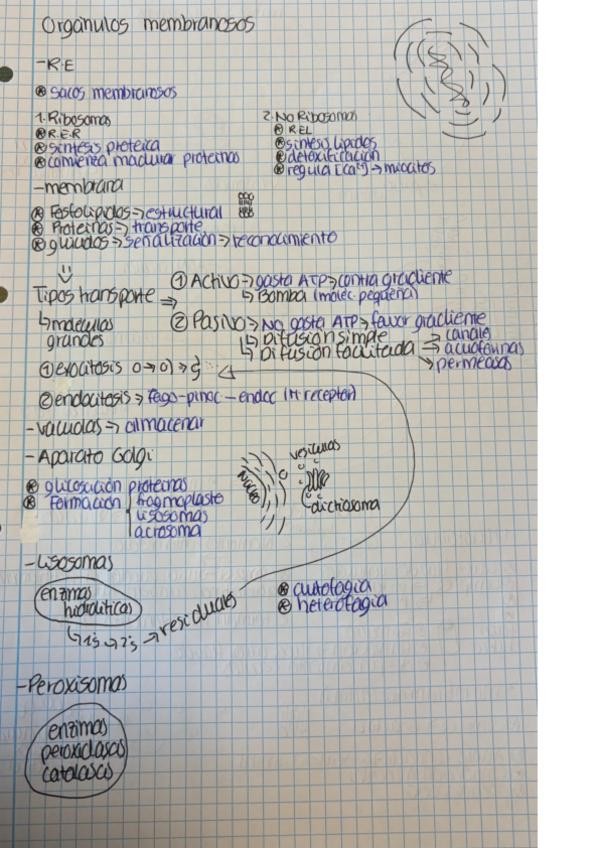 Orgánulos membranosos
- R.E
* sacos membranosos
1. Ribosomas
* R.E.R
* síntesis proteica
* comienza madurar proteinas
2. No Ribosomas
* REL
* síntesis lípidos
* detoxificación
* regula [Ca²⁺] → miocitos
- membrana
* Fosfolípidos ⇒ estructural
* Proteínas ⇒ transporte
* glúcidos ⇒ señalización ⇒ reconocimiento
Tipos transporte ⇒
① Activo ⇒ gasta ATP ⇒ contra gradiente
↳ Bomba (molec pequeña)
② Pasivo ⇒ No gasta ATP ⇒ favor gradiente
↳ Difusión simple
↳ Difusión facilitada
→ canale
⇒ acuaforinas
→ permeasas
↳ moléculas
grandes
① exocitosis
② endocitosis ⇒ fago - pinoc - endoc (M receptor)
- vacuolas ⇒ almacenar
- Aparato Golgi
* glicosilación proteinas
* Formación
fragmoplasto
lisosomas
acrosoma
Núcleo
vesículas
dictiosoma
- Lisosomas
enzimas
hidrolíticas
↳ 1ºs → 2ºs → residuales
* autofagia
* heterofagia
- Peroxisomas
enzimas
peroxidasas
catalasas